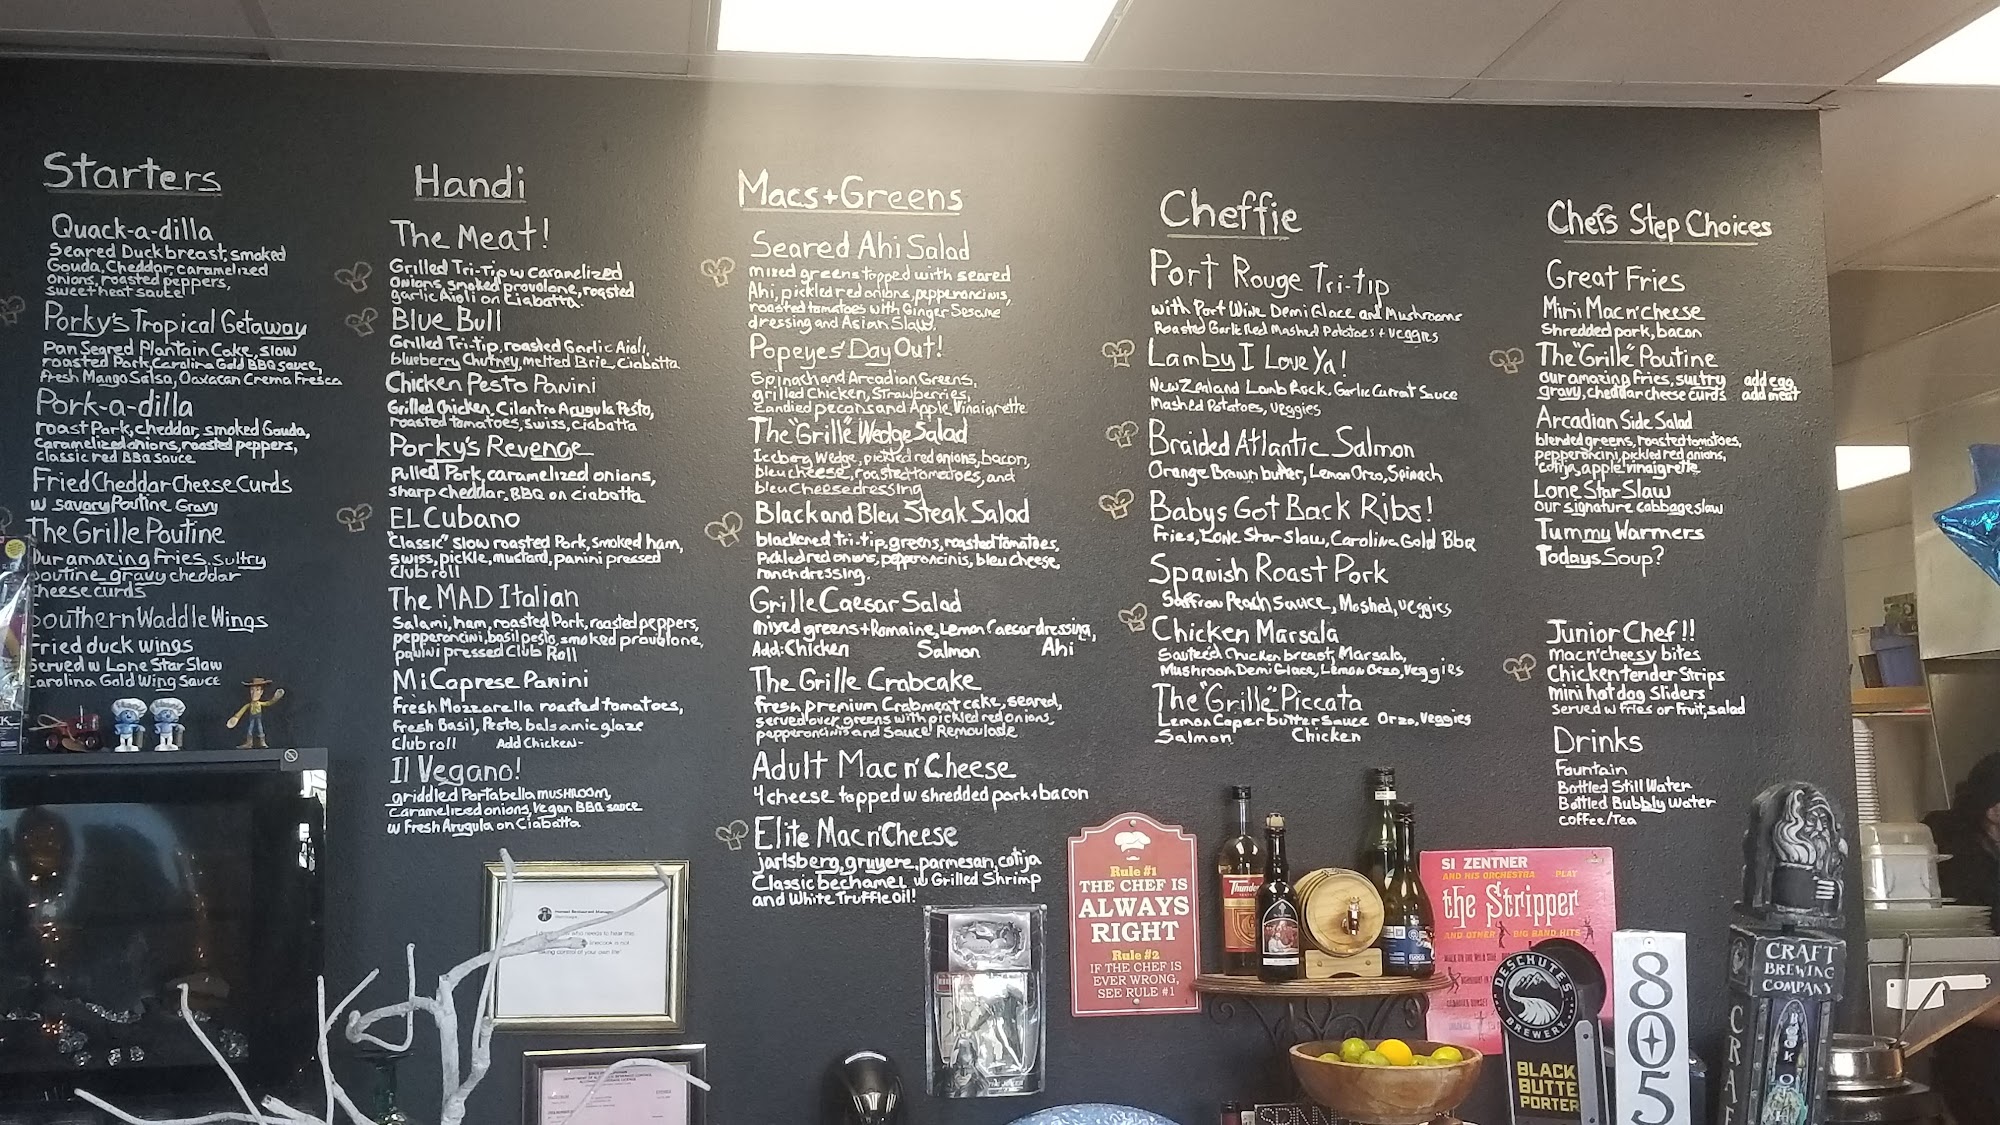 Starters
Quack-a-dilla
Seared Duck breast, smoked
Gouda, Cheddar, caramelized
onions, roasted peppers,
sweet heat sauce
Porky's Tropical Getaway
Pan Seared Plantain Cake, slow
roasted Pork, Carolina Gold BBQ sauce,
Fresh Mango Salsa, Oaxacan Crema Fresca
Pork-a-dilla
roast Pork, cheddar, smoked Gouda,
Caramelized onions, roasted peppers,
Classic red BBQ sauce
Fried Cheddar Cheese Curds
w savory Poutine Gravy
The Grille Poutine
Our amazing Fries, sultry
poutine gravy cheddar
cheese curds
Southern Waddle Wings
Fried duck wings
Served w Lone Star Slaw
Carolina Gold Wing Sauce
Handi
The Meat!
Grilled Tri-Tip w Caramelized
Onions, smoked provolone, roasted
garlic Aioli on Ciabatta
Blue Bull
Grilled Tri-tip, roasted Garlic Aioli,
blueberry Chutney, melted Brie, Ciabatta
Chicken Pesto Panini
Grilled Chicken, Cilantro Arugula Pesto,
roasted tomatoes, swiss, ciabatta
Porky's Revenge
Pulled Pork, caramelized onions,
sharp cheddar, BBQ on ciabatta
EL Cubano
"Classic" slow roasted Pork, smoked ham,
swiss, pickle, mustard, panini pressed
Club roll
The MAD Italian
Salami, ham, roasted Pork, roasted peppers,
pepperoncini, basil pesto, smoked provolone,
panini pressed Club Roll
Mi Caprese Panini
Fresh Mozzarella roasted tomatoes,
Fresh Basil, Pesto, balsamic glaze
Club roll Add Chicken-
Il Vegano!
griddled Portabella mushroom,
Caramelized onions, Vegan BBQ sauce
w Fresh Arugula on Ciabatta
Macs+Greens
Seared Ahi Salad
mixed greens topped with seared
Ahi, pickled red onions, pepperoncinis,
roasted tomatoes with Ginger Sesame
dressing and Asian Slaw.
Popeyes' Day Out!
Spinach and Arcadian Greens,
grilled Chicken, Strawberries,
candied pecans and Apple Vinaigrette
The "Grille" Wedge Salad
Iceberg Wedge, pickled red onions, bacon,
bleu cheese, roasted tomatoes, and
bleu Cheese dressing
Black and Bleu Steak Salad
blackened tri-tip, greens, roasted tomatoes,
Pickled red onions, pepperoncinis, bleu cheese,
ranch dressing.
Grille Caesar Salad
mixed greens + Romaine, Lemon Caesar dressing,
Add: Chicken Salmon Ahi
The Grille Crabcake
fresh premium Crabmeat cake, seared,
served over greens with pickled red onions,
pepperoncinis and Sauce Remoulade
Adult Mac n' Cheese
4 cheese topped w shredded pork + bacon
Elite Mac n' Cheese
jarlsberg, gruyere, parmesan, cotija
Classic bechamel w Grilled Shrimp
and White Truffle oil!
Cheffie
Port Rouge Tri-tip
with Port Wine Demi Glace and Mushrooms
Roasted Garlic Red Mashed Potatoes + veggies
Lamby I Love Ya!
New Zealand Lamb Rack, Garlic Currant Sauce
Mashed Potatoes, veggies
Braided Atlantic Salmon
Orange Brown butter, Lemon Orzo, Spinach
Babys Got Back Ribs!
Fries, Lone Star Slaw, Carolina Gold BBQ
Spanish Roast Pork
Saffron Peach Sauce, Mashed, veggies
Chicken Marsala
Sauteed Chicken breast, Marsala,
Mushroom Demi Glace, Lemon Orzo, Veggies
The "Grille" Piccata
Lemon Caper butter sauce Orzo, Veggies
Salmon Chicken
Chefs Step Choices
Great Fries
Mini Mac n' cheese
Shredded pork, bacon
The "Grille" Poutine
our amazing fries, sultry add egg
gravy, cheddar cheese curds add meat
Arcadian Side Salad
blended greens, roasted tomatoes,
pepperoncini, pickled red onions,
cotija, apple vinaigrette
Lone Star Slaw
our signature cabbage slaw
Tummy Warmers
Todays Soup?
Junior Chef!!
mac n' cheesy bites
Chicken tender Strips
mini hot dog Sliders
Served w fries or fruit, salad
Drinks
Fountain
Bottled Still Water
Bottled Bubbly water
Coffee/Tea
Rule #1
THE CHEF IS
ALWAYS
RIGHT
Rule #2
IF THE CHEF IS
EVER WRONG,
SEE RULE #1
SI ZENTNER
AND HIS ORCHESTRA PLAY
the Stripper
AND OTHER BIG BAND HITS
DESCHUTES
BREWERY
BLACK
BUTTE
PORTER
805
CRAFT
BREWING
COMPANY